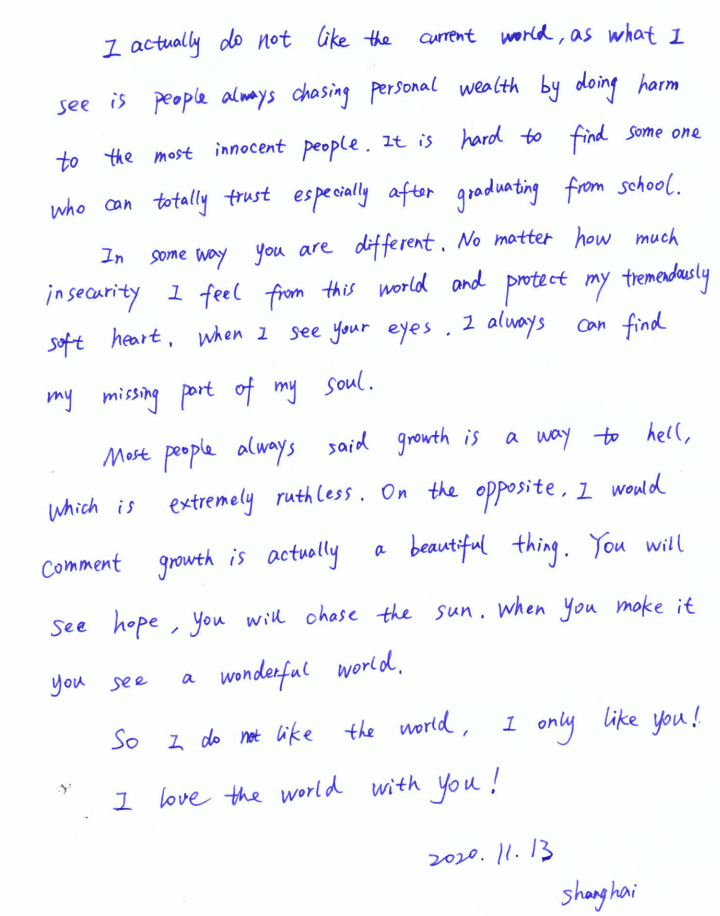 I actually do not like the current world, as what I
see is people always chasing personal wealth by doing harm
to the most innocent people. It is hard to find some one
who can totally trust especially after graduating from school.
In some way you are different. No matter how much
insecurity I feel from this world and protect my tremendously
soft heart. When I see your eyes. I always can find
my missing part of my soul.
Most people always said growth is a way to hell,
which is extremely ruthless. On the opposite, I would
comment growth is actually a beautiful thing. You will
see hope, you will chase the sun. When you make it
you see a wonderful world.
So I do not like the world, I only like you!
I love the world with you!
2020. 11. 13
Shanghai